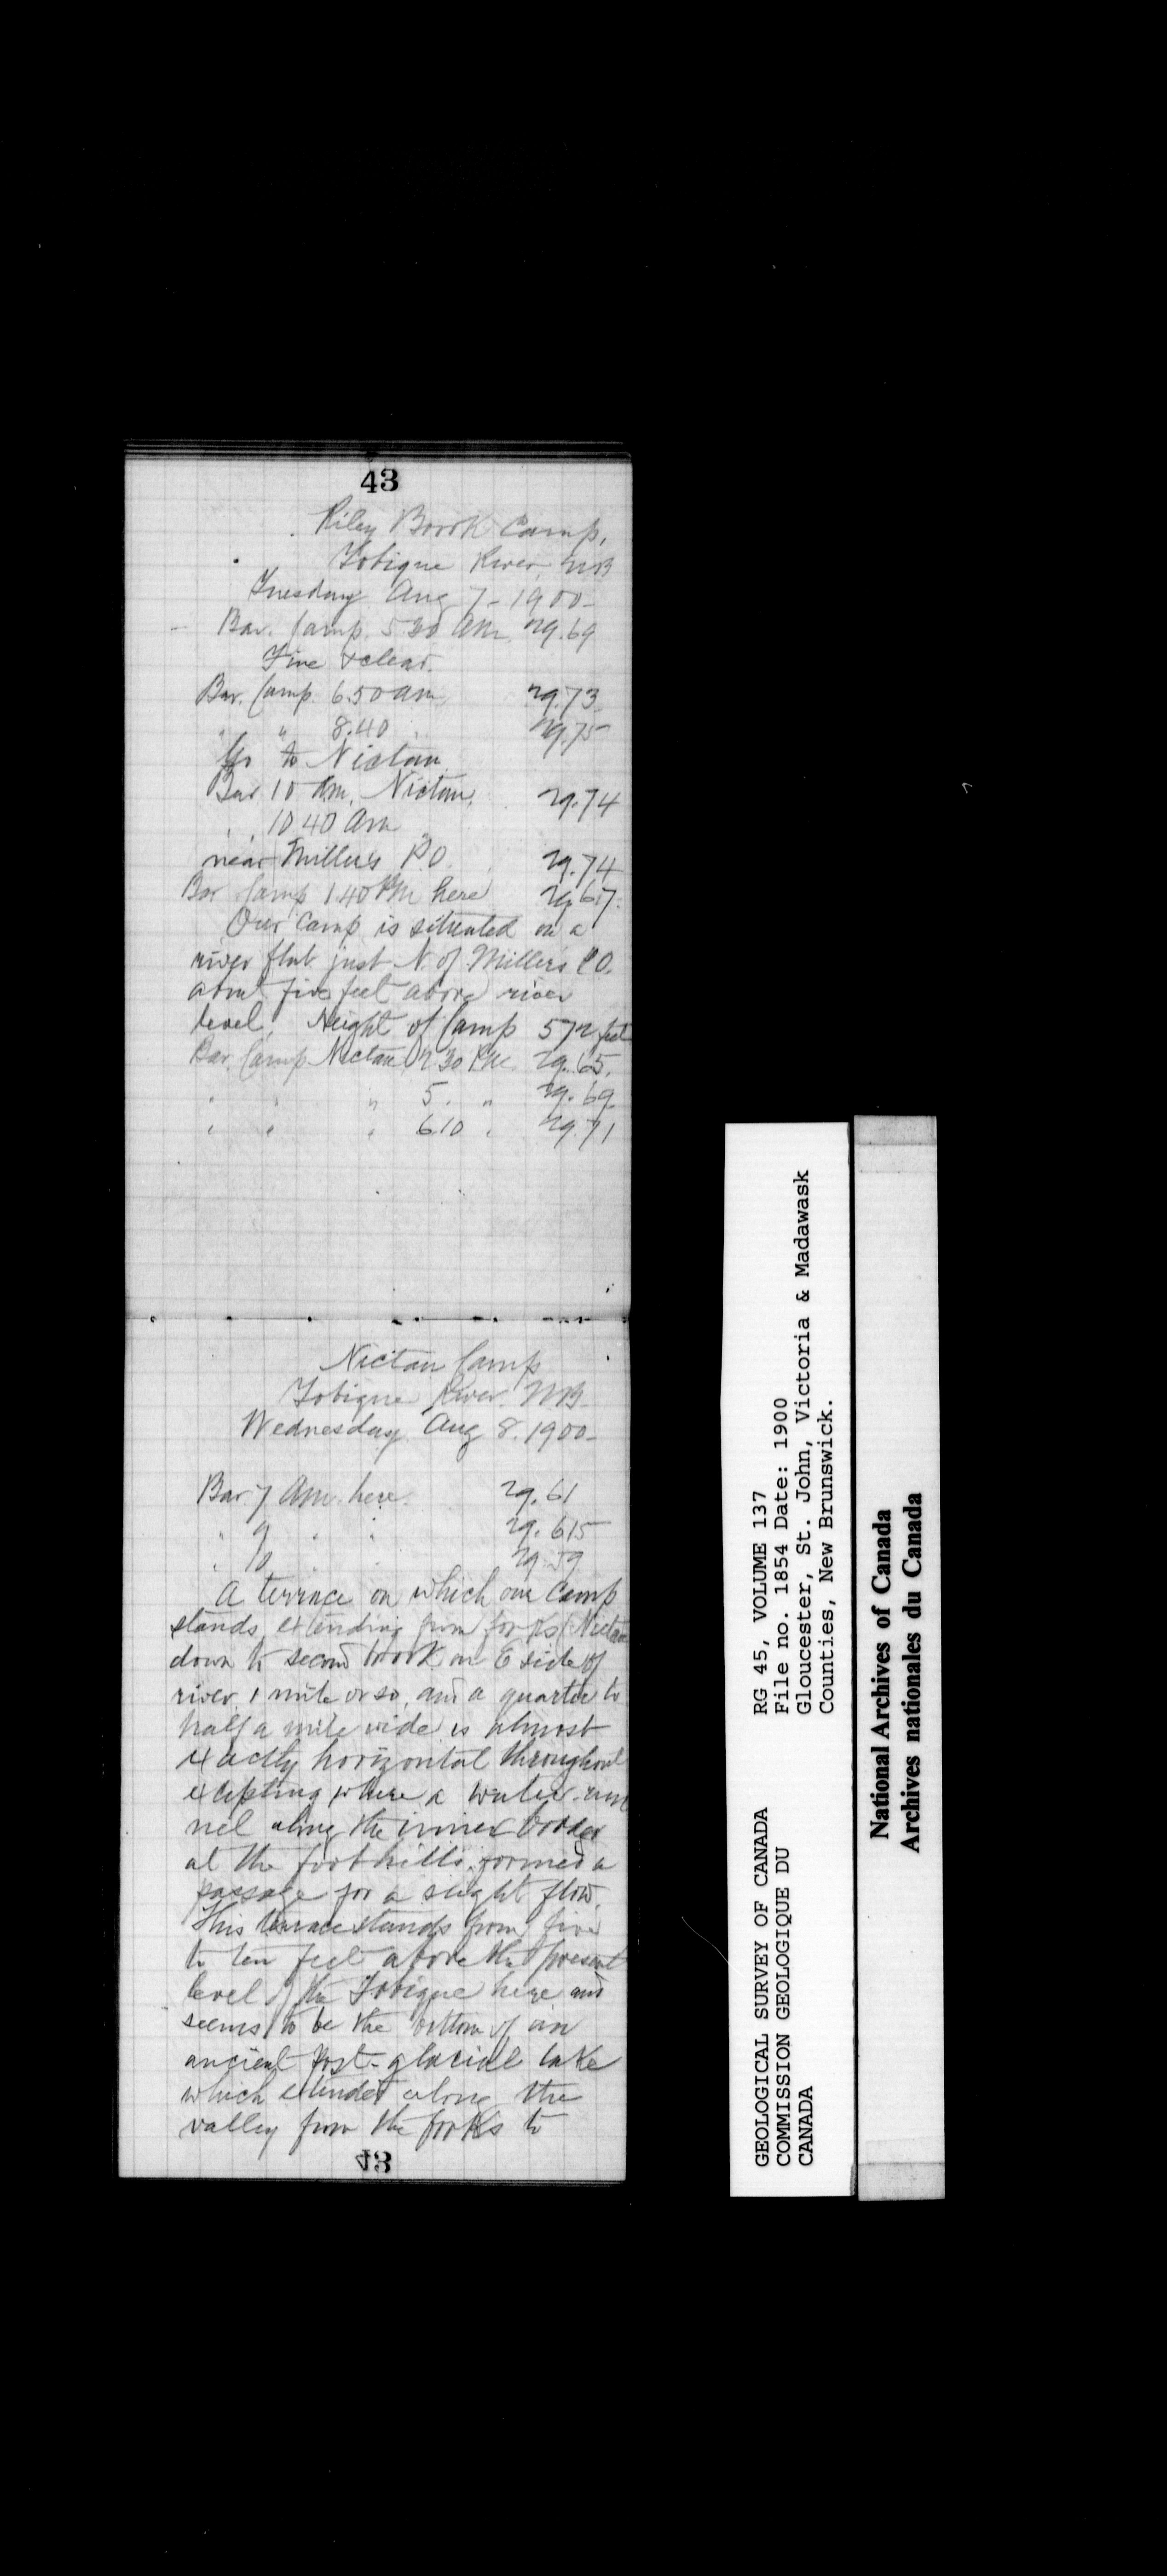 43
Riley Brook Camp,
Tobique River, NB
Tuesday Aug 7 - 1900 -
Bar. Camp. 5 30 Am. 29.69
Fine & clear.
Bar. Camp. 6.50 am. 29.73
" " 8.40 29.75
Go to Nictau.
Bar 10 Am. Nictau, 29.74
" " 10 40 Am
near Millers P.O. 29.74
Bar Camp 1.40 PM here 29.67.
Our camp is situated on a
river flat just N. of Millers P.O.
about five feet above river
level. Height of Camp 572 feet
Bar. Camp Nictau 2 30 PM. 29.65.
" " " 5. " 29.69.
" " " 6 10 " 29.71
Nictau Camp
Tobique River. N.B.
Wednesday Aug 8. 1900 -
Bar 7 Am. here. 29.61
" 9 " " 29.615
" 10 " 29.59
A terrace on which our camp
stands, extending from forks (Nictau
down to second brook on E side of
river, 1 mile or so, and a quarter to
half a mile wide is almost
exactly horizontal throughout
excepting where a water-run
nel along the inner border
at the foot hills formed a
passage for a slight flow.
This terrace stands from five
to ten feet above the present
level of the Tobique here and
seems to be the bottom of an
ancient post-glacial lake
which extended along the
valley from the forks to
43
GEOLOGICAL SURVEY OF CANADA
COMMISSION GEOLOGIQUE DU
CANADA
RG 45, VOLUME 137
File no. 1854 Date: 1900
Gloucester, St. John, Victoria & Madawask
Counties, New Brunswick.
National Archives of Canada
Archives nationales du Canada